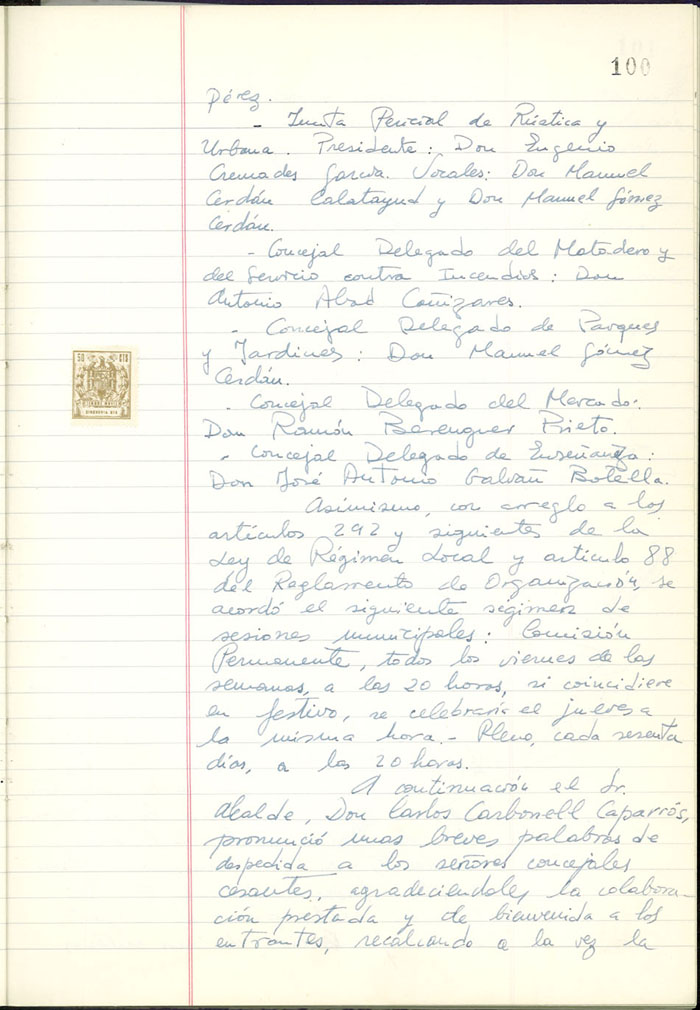 100
Pérez.
- Junta Pericial de Rústica y
Urbana. Presidente: Don Eugenio
Cremades García. Vocales: Don Manuel
Cerdán Calatayud y Don Manuel Gómez
Cerdán.
- Concejal Delegado del Matadero y
del Servicio contra Incendios: Don
Antonio Abad Cañizares.
- Concejal Delegado de Parques
y Jardines: Don Manuel Gómez
Cerdán.
- Concejal Delegado del Mercado:
Don Ramón Berenguer Prieto.
- Concejal Delegado de Enseñanza:
Don José Antonio Galvañ Botella.
Asimismo, con arreglo a los
artículos 292 y siguientes de la
Ley de Régimen Local y artículo 88
del Reglamento de Organización, se
acordó el siguiente régimen de
sesiones municipales: Comisión
Permanente, todos los viernes de las
semanas, a las 20 horas, si coincidiere
en festivo, se celebraría el jueves a
la misma hora.- Pleno, cada sesenta
días, a las 20 horas.
A continuación el Sr.
Alcalde, Don Carlos Carbonell Caparrós,
pronunció unas breves palabras de
despedida a los señores concejales
cesantes, agradeciendoles la colabora-
ción prestada y de bienvenida a los
entrantes, recalcando a la vez la
50 CTS